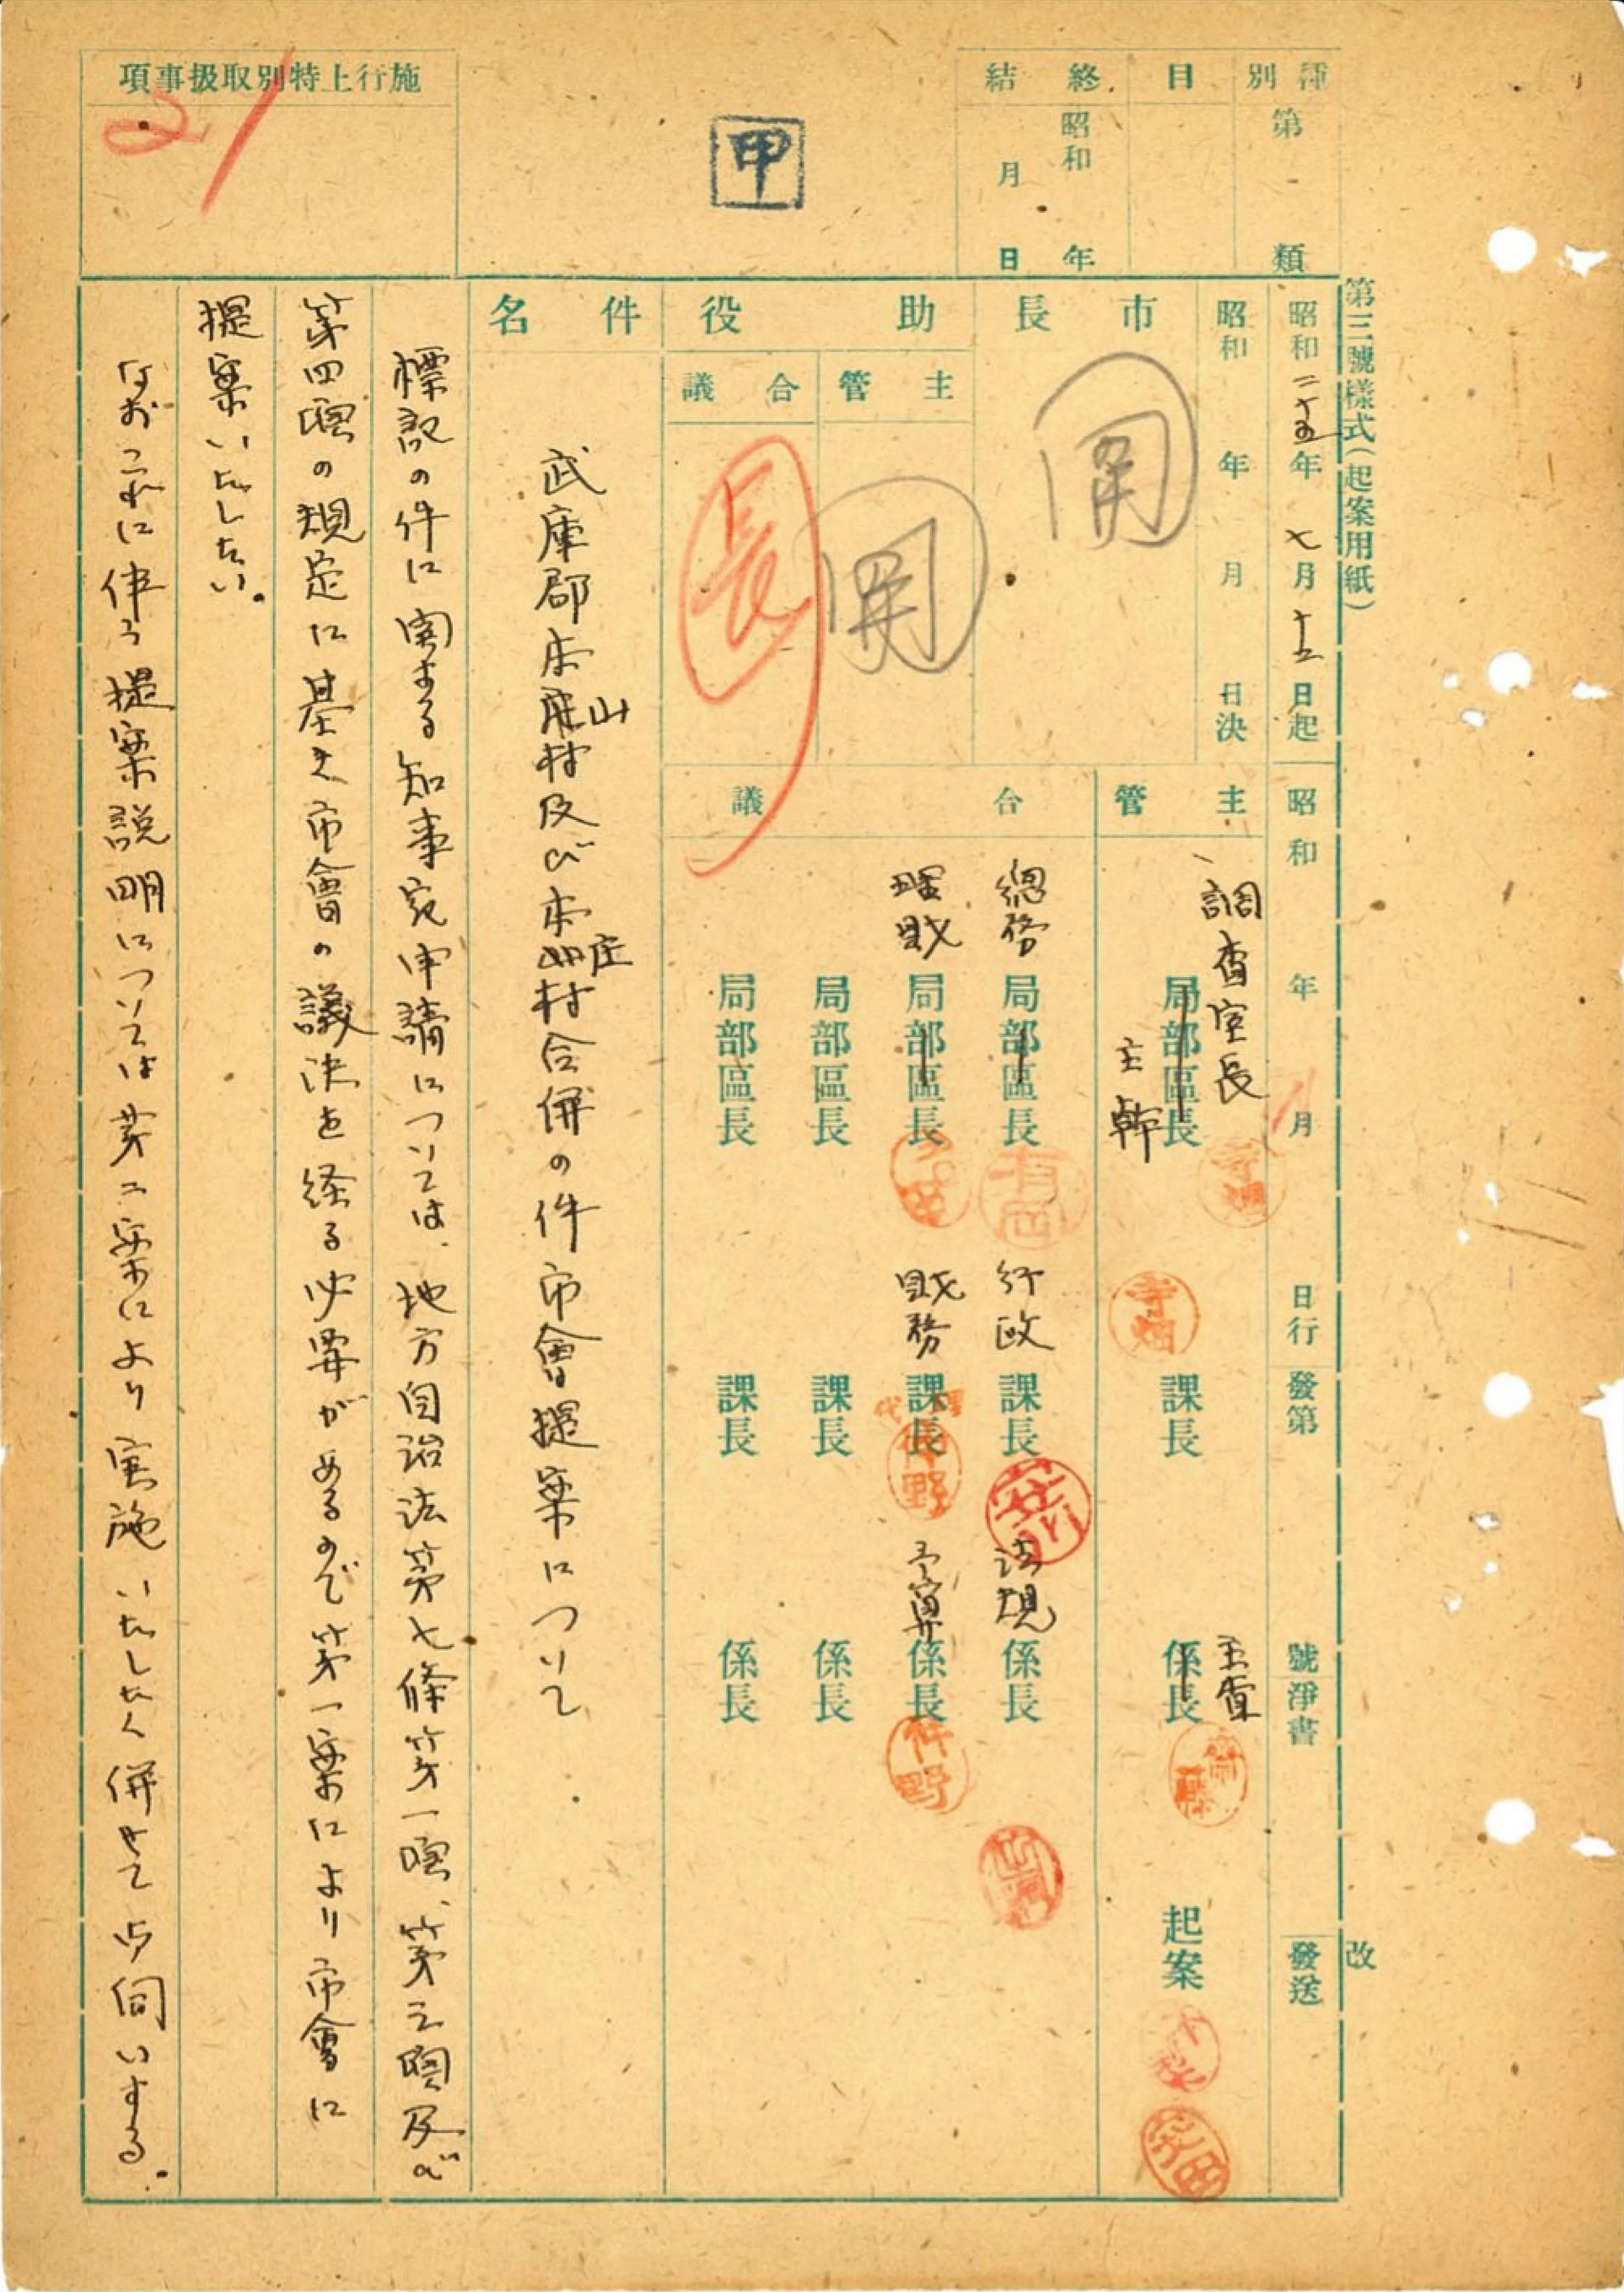 第三號樣式(起案用紙)
改
種別
第　類
目
終結
昭和　年　月　日
甲
施行上特別取扱事項
21
昭和二十五年七月十五日起
昭和　年　月　日決
昭和　年　月　日行
發第　號
淨書
發送
市長
助役
主管
合議
件名
主管
合議
調査室長
局部區長
主幹
課長
主査
係長
起案
總務局部區長
行政課長
法規係長
理財局部區長
財務課長
代理
予算係長
局部區長
課長
係長
局部區長
課長
係長
武庫郡本山村及び本庄村合併の件市會提案について
標記の件に関する知事宛申請については、地方自治法第七條第一項、第三項及び
第四項の規定に基き市會の議決を経る必要があるので第一案により市會に
提案いたしたい。
なおこれに伴う提案説明については第二案により実施いたしたく併せてお伺いする。